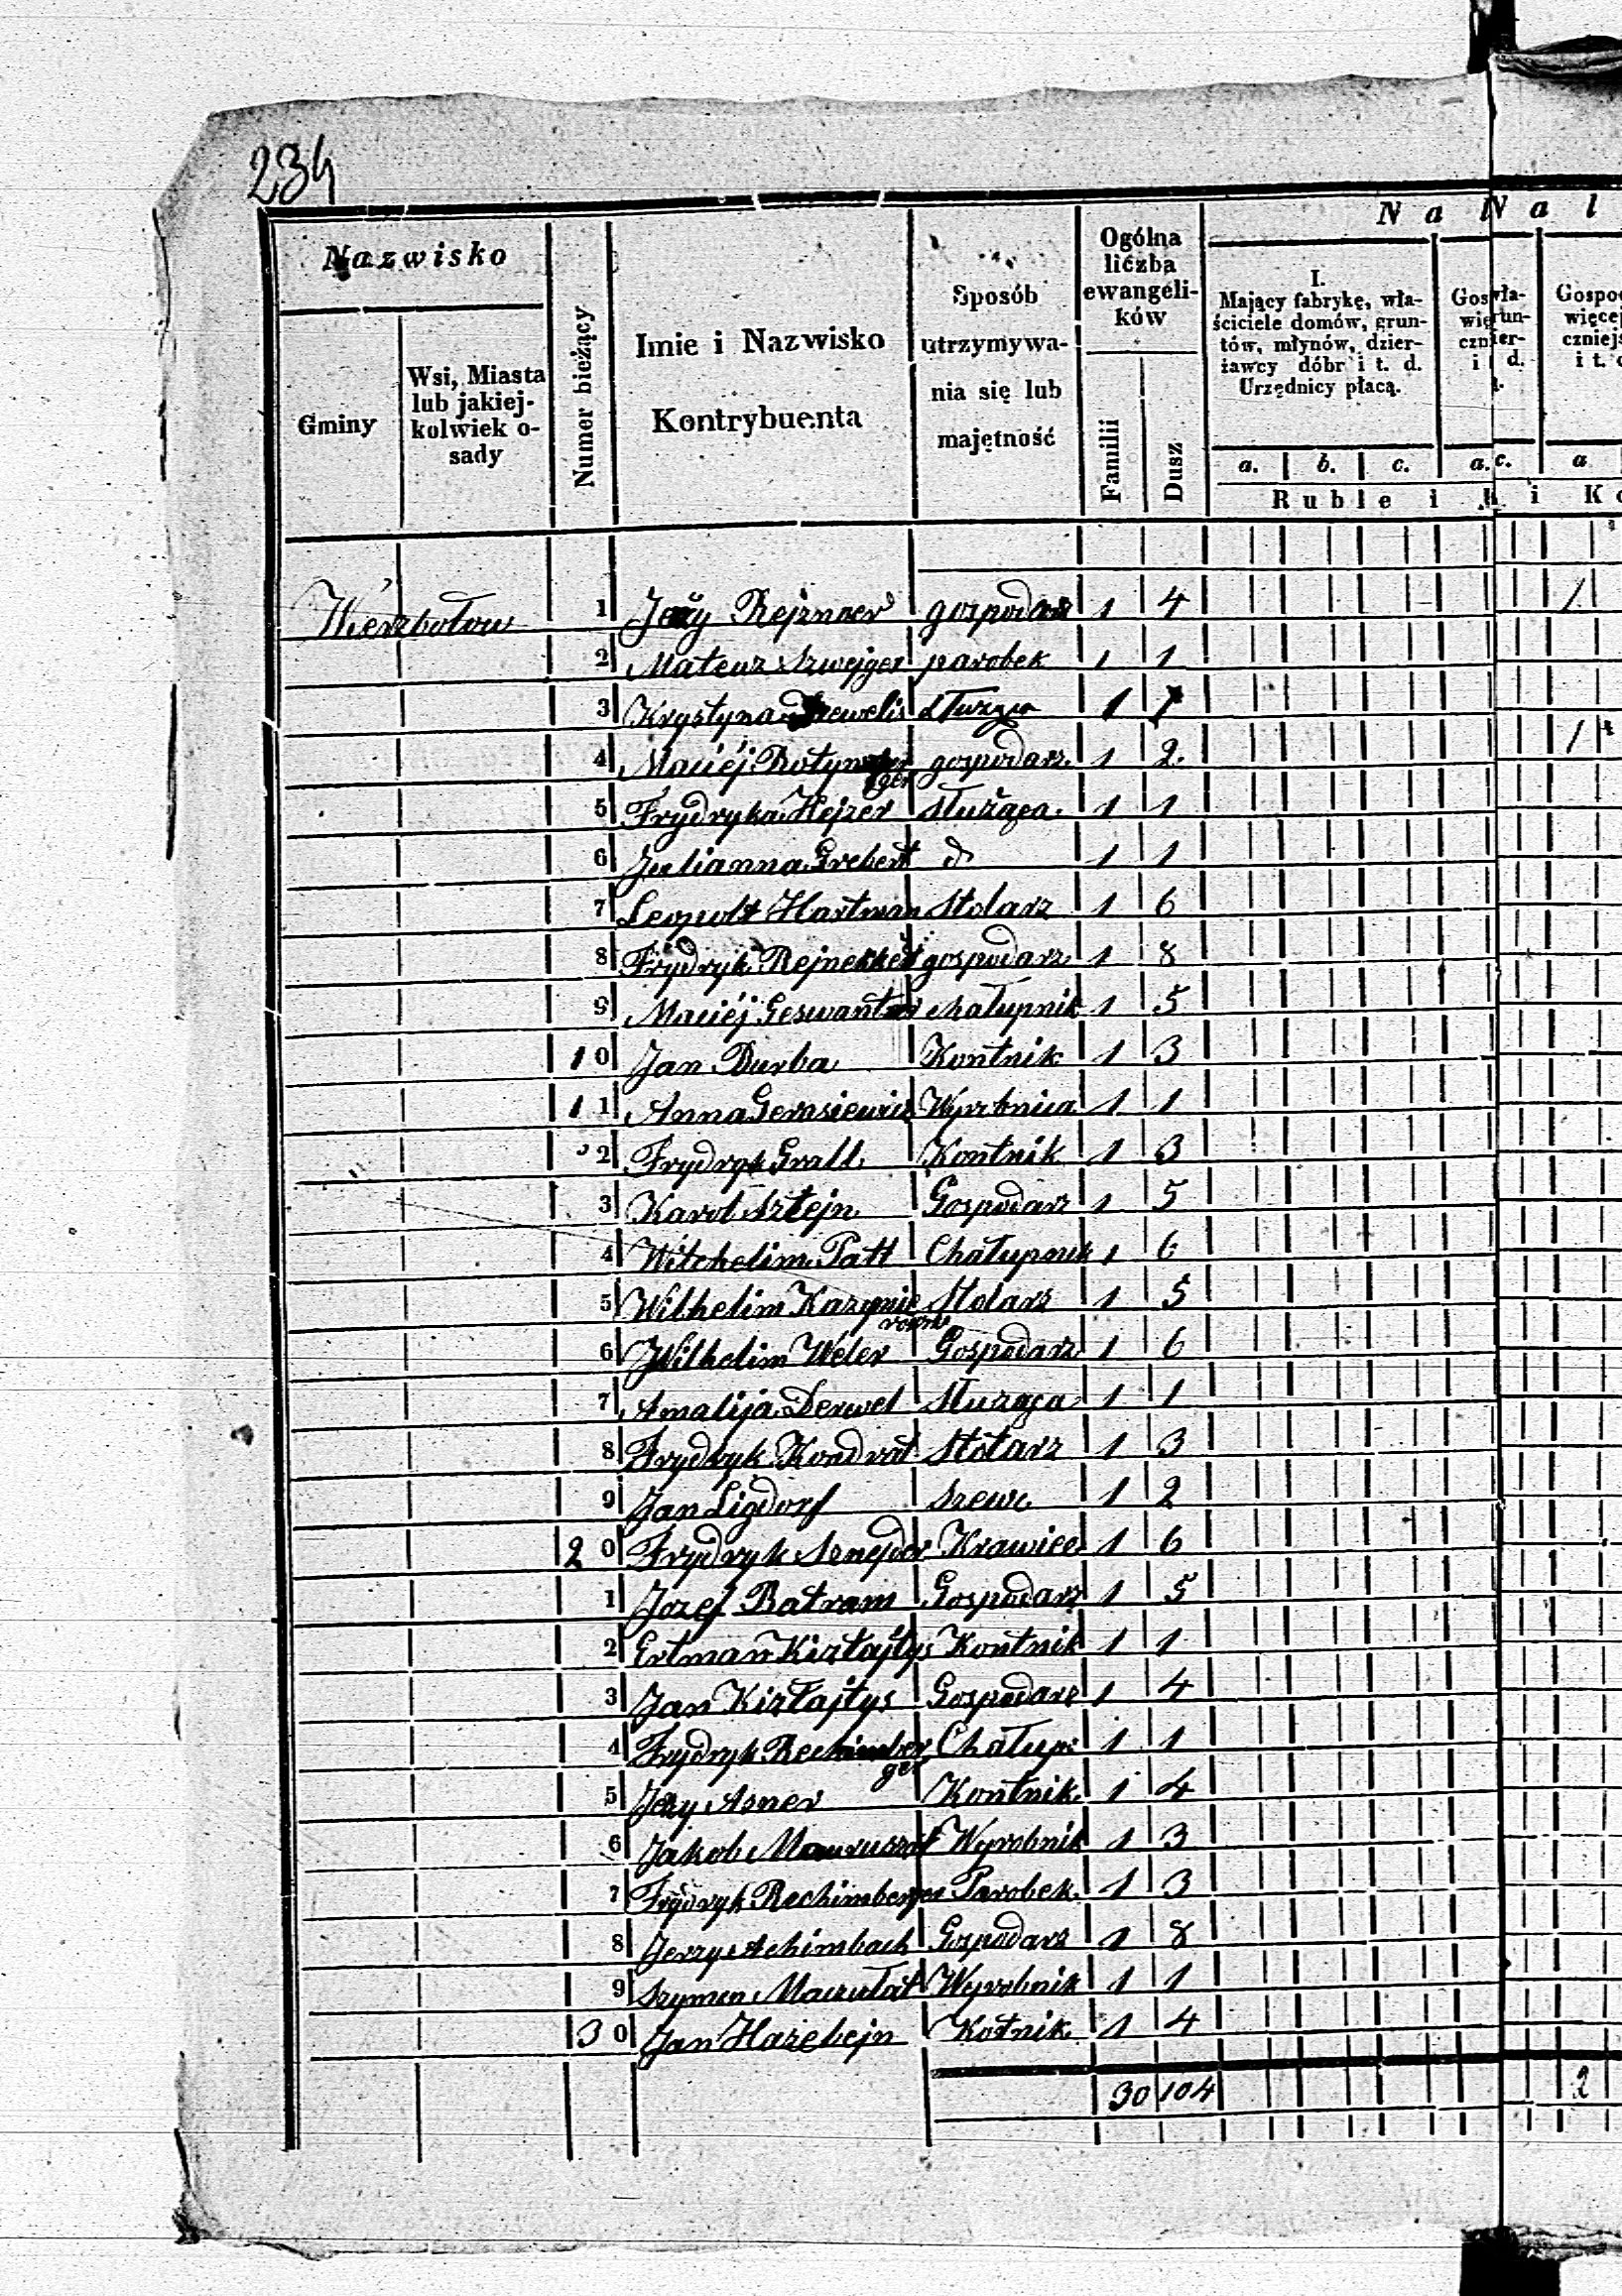 234
Nazwisko
Gminy
Wsi, Miasta lub jakiej-kolwiek o-sady
Numer bieżący
Imie i Nazwisko Kontrybuenta
Sposób utrzymywa-nia się lub majętność
Ogólna liczba ewangeli-ków
Familii
Dusz
N a
N a l
I.
Mający fabrykę, wła-
ściciele domów, grun-
tów, młynów, dzier-
żawcy dóbr i t. d.
Urzędnicy płacą.
a. b. c. a. c. a
Ruble i i Ko
Wierzbołow
1 Jerzy Rejzner gospodarz 1 4 1
2 Mateusz Szwejger parobek 1 1
3 Krystyna służąca 1 1
4 Maciéj gospodarz 1 2 1
5 Frydryka Hejzer służąca 1 1
6 Julianna Grebert d 1 1
7 Leopold Hartman Stolarz 1 6
8 Frydryk Rejnekkert gospodarz 1 8
9 Maciéj Geswantner chałupnik 1 5
10 Jan Burba Kontnik 1 3
11 Anna Gerasiewicz Wyrobnica 1 1
2 Frydryk Grall Kontnik 1 3
3 Karol Sztejn Gospodarz 1 5
4 Wilchelim Patt Chałupnik 1 6
5 Wilhelim Stolarz 1 5
6 Wilhelim Weler Gospodarz 1 6
7 Amalija Derwel Służąca 1 1
8 Frydryk Kondrat Stolarz 1 3
9 Jan Ligdorf Szewc 1 2
20 Frydryk Sznejder Krawiec 1 6
1 Jozef Batram Gospodarz 1 5
2 Ertman Kizłajtys Kontnik 1 1
3 Jan Kizłajtys Gospodarz 1 4
4 Frydryk Rechimberger Chałup: 1 1
5 Jerzy Asner Kontnik 1 4
6 Jakob Mauruszat Wyrobnik 1 3
7 Frydryk Rechimberger Parobek 1 3
8 Jerzy Achimbach Gospodarz 1 8
9 Szymon Maczułat Wyrobnik 1 1
30 Jan Hazebejn Kotnik 1 4
30 104 2